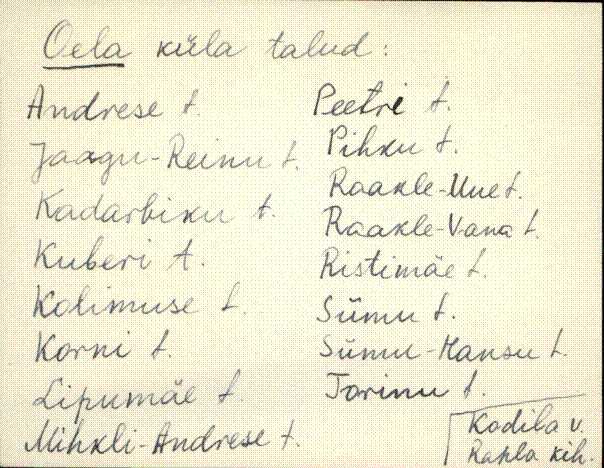 Oela küla talud:
Andrese t.
Jaagu-Reinu t.
Kadarbiku t.
Kuberi t.
Kolimuse t.
Korni t.
Lipumäe t.
Mihkli-Andrese t.
Peetri t.
Pihku t.
Raakle-Uue t.
Raakle-Vana t.
Ristimäe t.
Sümu t.
Sümu-Hansu t.
Torinu t.
Kodila v.
Rapla kih.